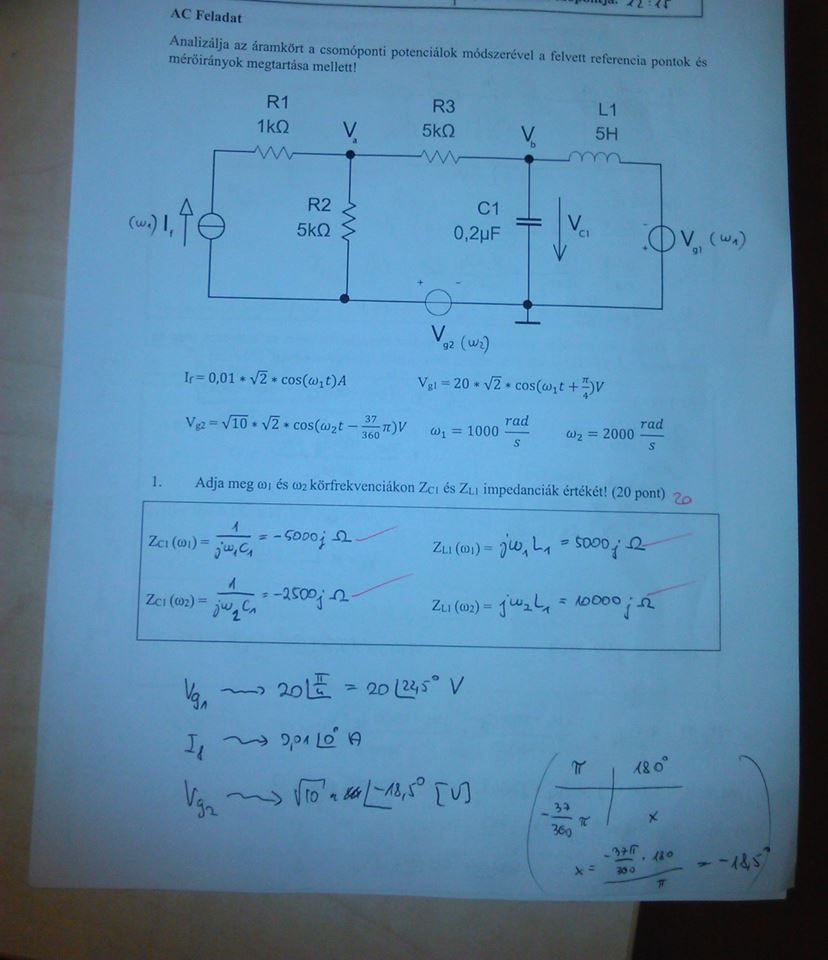 12:15
AC Feladat
Analizálja az áramkört a csomóponti potenciálok módszerével a felvett referencia pontok és
mérőirányok megtartása mellett!
R1
1kΩ
Va
R3
5kΩ
Vb
L1
5H
(ω1) If
R2
5kΩ
C1
0,2µF
VC1
-
+
Vg1 (ω1)
+ -
Vg2 (ω2)
If = 0,01 * √2 * cos(ω1t)A
Vg1 = 20 * √2 * cos(ω1t + π/4)V
Vg2 = √10 * √2 * cos(ω2t − 37/360 π)V
ω1 = 1000 rad/s
ω2 = 2000 rad/s
1. Adja meg ω1 és ω2 körfrekvenciákon ZC1 és ZL1 impedanciák értékét! (20 pont) 20
ZC1 (ω1) = 1/jω1C1 = -5000j Ω
ZL1 (ω1) = jω1L1 = 5000j Ω
ZC1 (ω2) = 1/jω2C1 = -2500j Ω
ZL1 (ω2) = jω2L1 = 10000j Ω
Vg1 → 20∠π/4 = 20∠22,5° V
If → 0,01∠0° A
Vg2 → √10 ∠-18,5° [V]
π | 180°
-37/360 π | x
x = (-37π/360 · 180)/π = -18,5°